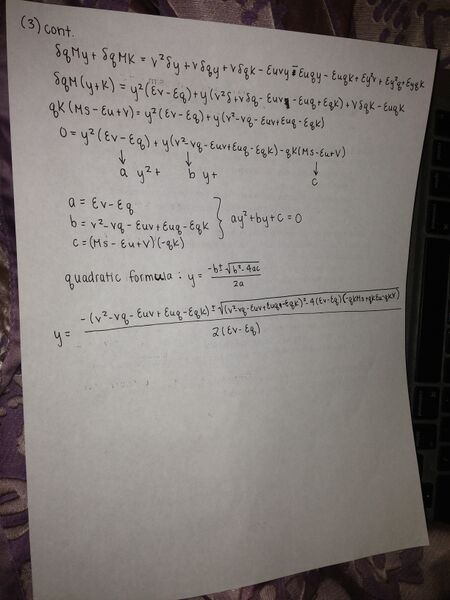 (3) cont.
δqMy + δqMK = v²δy + vδqy + vδqK - εuvy - εuqy - εuqK + εy²v + εy²q + εyqK
δqM(y+K) = y²(εv - εq) + y(v²δ + vδq - εuv - εuq + εqK) + vδqK - εuqK
qK(Ms - εu + V) = y²(εv - εq) + y(v² - vq - εuv + εuq - εqK)
0 = y²(εv - εq) + y(v² - vq - εuv + εuq - εqK) - qK(Ms - εu + V)
a y² + b y + c
a = εv - εq
b = v² - vq - εuv + εuq - εqK } ay² + by + c = 0
c = (Ms - εu + V)(-qK)
quadratic formula : y = -b ± √b² - 4ac / 2a
y = -(v² - vq - εuv + εuq - εqK) ± √(v² - vq - εuv + εuq - εqK)² - 4(εv - εq)(-qKMs + qKεu - qKV) / 2(εv - εq)